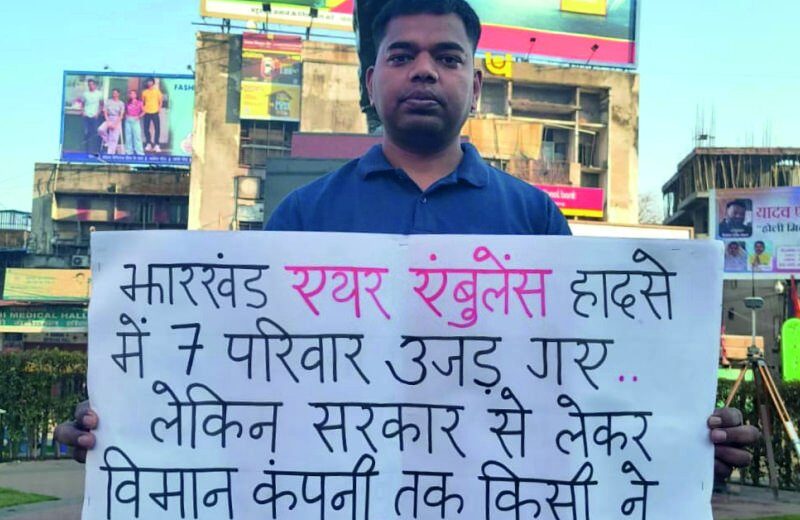 FASH
यादव प
"होली मि
MEDICAL HALL
झारखंड एयर एंबुलेंस हादसे
में 7 परिवार उजड़ गए..
लेकिन सरकार से लेकर
विमान कंपनी तक किसी ने